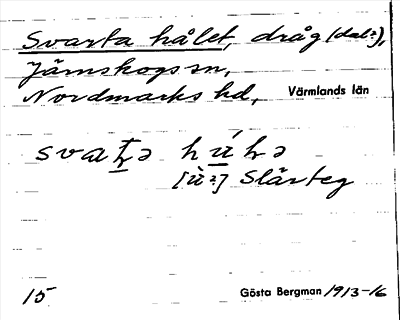 Svarta hålet, dråg (dal?),
Järnskogs sn,
Nordmarks hd, Värmlands län
svaʈə
[ù?] Slårteg
15 Gösta Bergman 1913-16